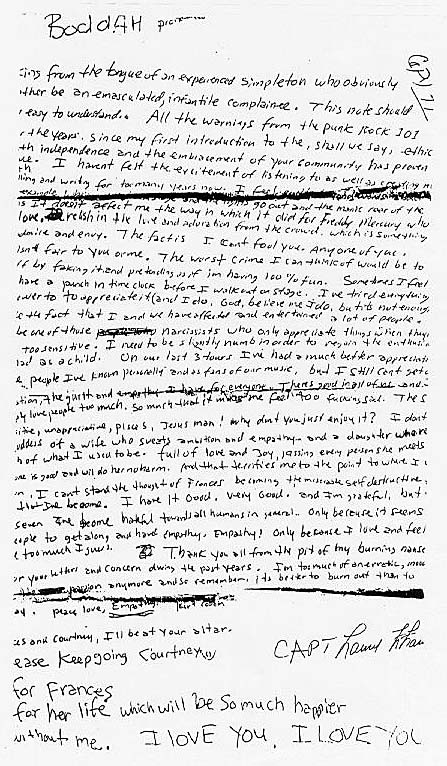 BoddAH pronounced
Speaking from the tongue of an experienced simpleton who obviously
ther be an emasculated, infantile complainee. This note should
easy to understand. All the warnings from the punk rock 101
the years. Since my first introduction to the, shall we say, ethic
th independence and the embracement of your community has proven
ue. I havent felt the excitement of listening to as well as creating
and writing for too many years now. I feel
go out and the manic roar of the
it doesnt affect me the way in which it did for Freddy Mercury who
love, relish in the love and adoration from the crowd. which is something
dmire and envy. The fact is I cant fool you. Any one of you.
isnt fair to you or me. The worst crime I can think of would be to
ff by faking it and pretending as if im having 100% fun. Sometimes I feel
have a punch in time clock before I walk out on stage. I've tried everything
ower to appreciate it (and I do, God, believe me I do, but its not enough)
the fact that I and we have affected and entertained a lot of people.
be one of those narcissists who only appreciate things when they
too sensitive. I need to be slightly numb in order to regain the enthusia
had as a child. On our last 3 tours I've had a much better appreciati
people I've known personally and as fans of our music, but I still cant get
ation, the guilt and empathy I have for everyone. Theres good in all of us and
ply love people too much. So much that it makes me feel too fucking sad. The s
itive, unappreciative, pisces, Jesus man! why dont you just enjoy it? I dont
oddess of a wife who sweats ambition and empathy. and a daughter who re
h of what I used to be. full of love and Joy, kissing every person she meets
one is good and will do her no harm. And that terrifies me to the point to where I
n. I cant stand the thought of Frances becoming the miserable self destructive,
that Ive become. I have it Good. Very Good. and I'm grateful, but
seven Ive become hateful towards all humans in general. Only because it seems
eople to get along and have empathy. Empathy! Only because I love and feel
e too much I guess. Thank you all from the pit of my burning nause
or your letters and concern during the past years. I'm too much of an erratic, moo
passion anymore and so remember, its better to burn out than to
ay. peace, love, Empathy. Kurt Cobain
es and Courtney, I'll be at your altar.
ease Keep going Courtney
for Frances
for her life which will be so much happier
without me. I LOVE YOU. I LOVE YOU